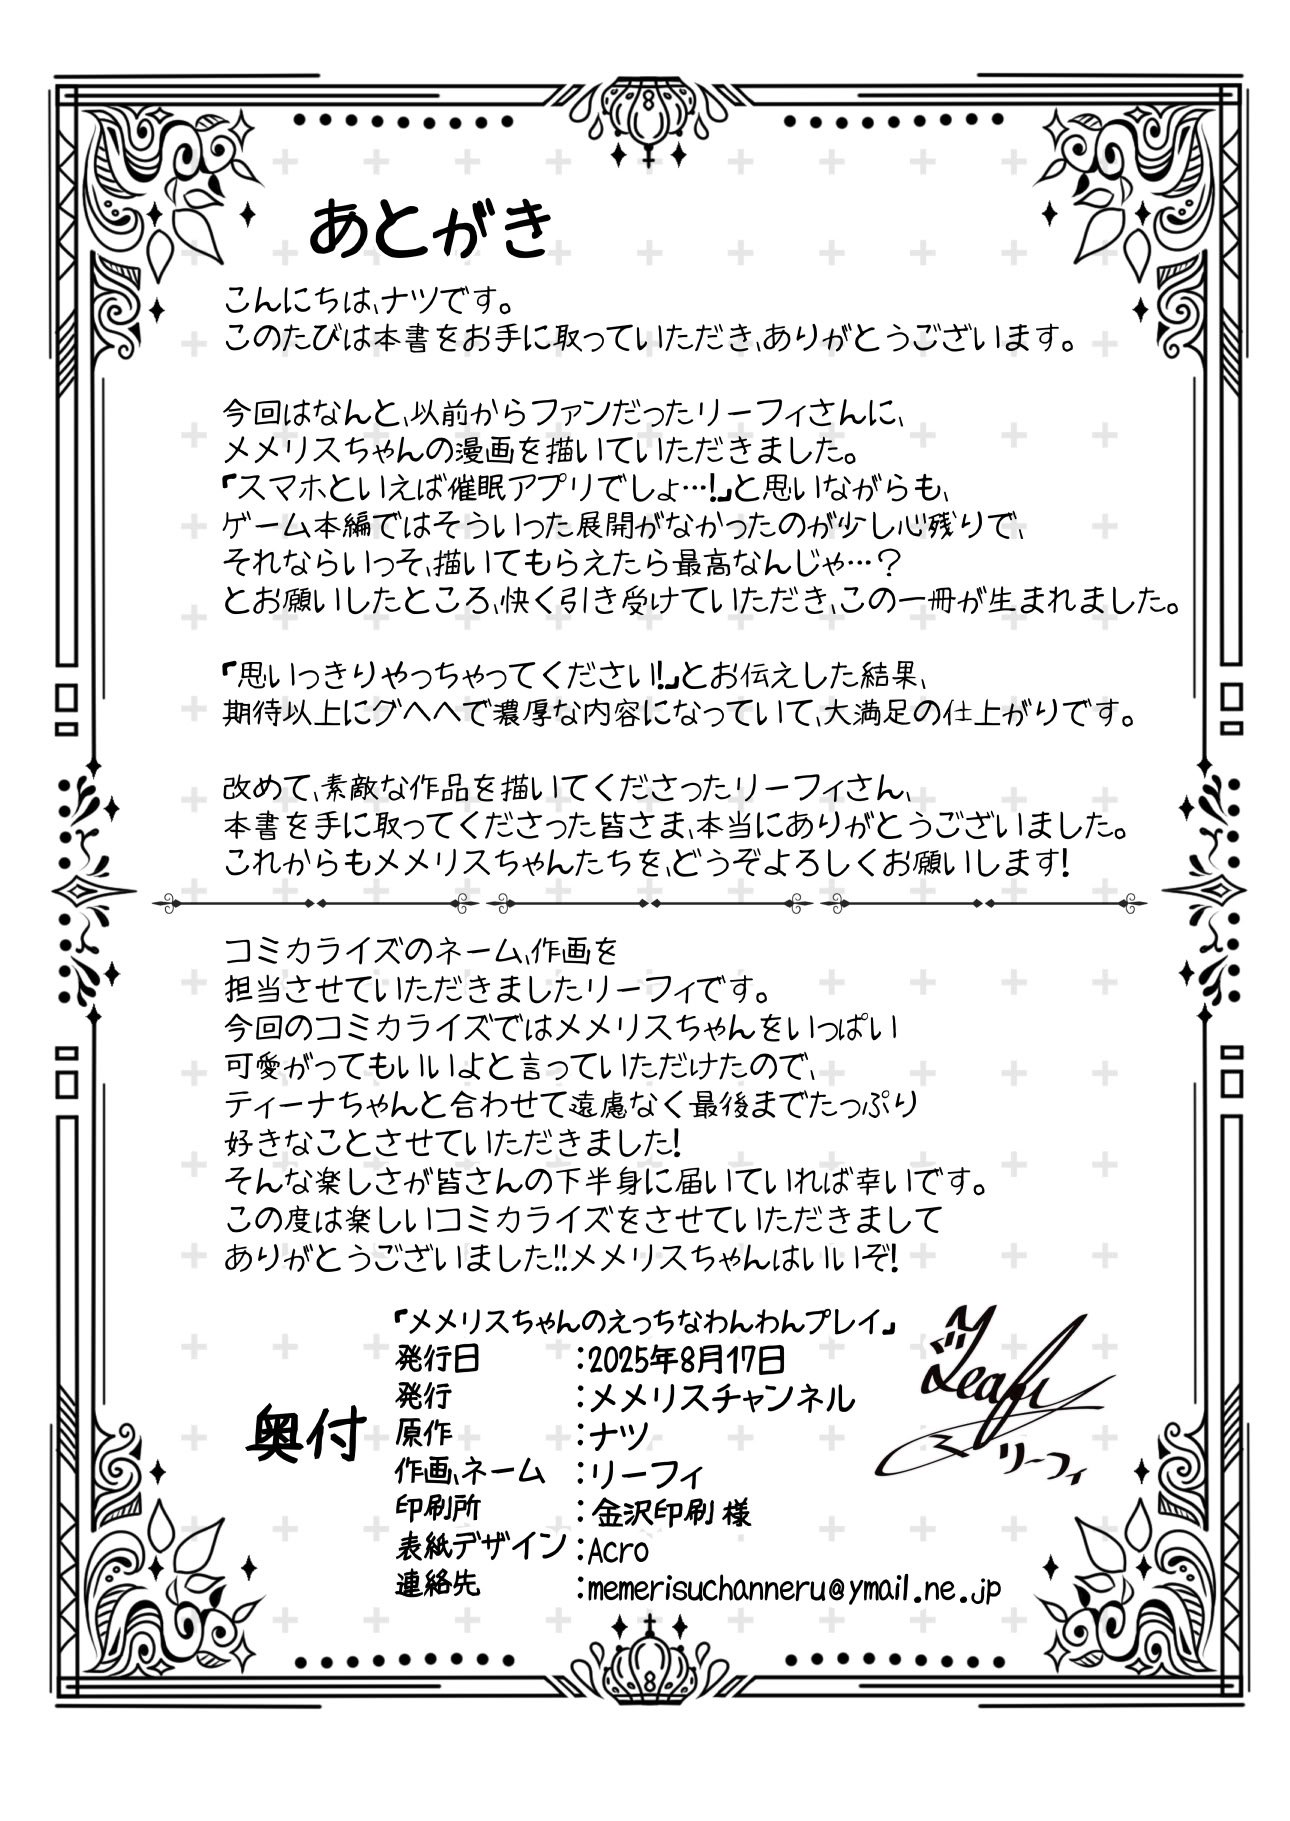 あとがき
こんにちは、ナツです。
このたびは本書をお手に取っていただき、ありがとうございます。
今回はなんと、以前からファンだったリーフィさんに、
メメリスちゃんの漫画を描いていただきました。
『スマホといえば催眠アプリでしょ…!』と思いながらも、
ゲーム本編ではそういった展開がなかったのが少し心残りで、
それならいっそ、描いてもらえたら最高なんじゃ…？
とお願いしたところ、快く引き受けていただき、この一冊が生まれました。
『思いっきりやっちゃってください!』とお伝えした結果、
期待以上にグヘヘで濃厚な内容になっていて、大満足の仕上がりです。
改めて、素敵な作品を描いてくださったリーフィさん、
本書を手に取ってくださった皆さま、本当にありがとうございました。
これからもメメリスちゃんたちを、どうぞよろしくお願いします!
コミカライズのネーム、作画を
担当させていただきましたリーフィです。
今回のコミカライズではメメリスちゃんをいっぱい
可愛がってもいいよと言っていただけたので、
ティーナちゃんと合わせて遠慮なく最後までたっぷり
好きなことさせていただきました!
そんな楽しさが皆さんの下半身に届いていれば幸いです。
この度は楽しいコミカライズをさせていただきまして
ありがとうございました!!メメリスちゃんはいいぞ!
『メメリスちゃんのえっちなわんわんプレイ』
奥付
発行日 :2025年8月17日
発行 :メメリスチャンネル
原作 :ナツ
作画、ネーム :リーフィ
印刷所 :金沢印刷 様
表紙デザイン :Acro
連絡先 :memerisuchanneru@ymail.ne.jp
リーフィ
8
8